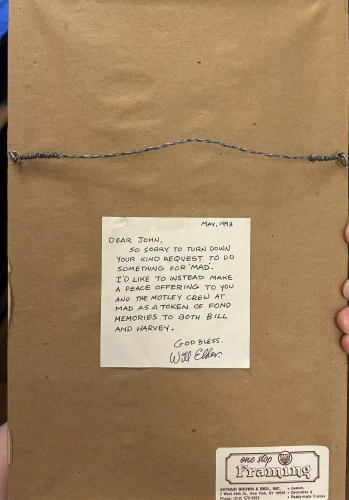 MAY, 1993
DEAR JOHN,
SO SORRY TO TURN DOWN
YOUR KIND REQUEST TO DO
SOMETHING FOR 'MAD'.
I'D LIKE TO INSTEAD MAKE
A PEACE OFFERING TO YOU
AND THE MOTLEY CREW AT
MAD AS A TOKEN OF FOND
MEMORIES TO BOTH BILL
AND HARVEY.
GOD BLESS.
Will Elder.
one stop
Framing
ARTHUR BROWN & BRO., INC.
2 West 46th St., New York, NY 10036
Phone: (212) 575-5555
• Custom,
• Decorative
• Ready-made Frames